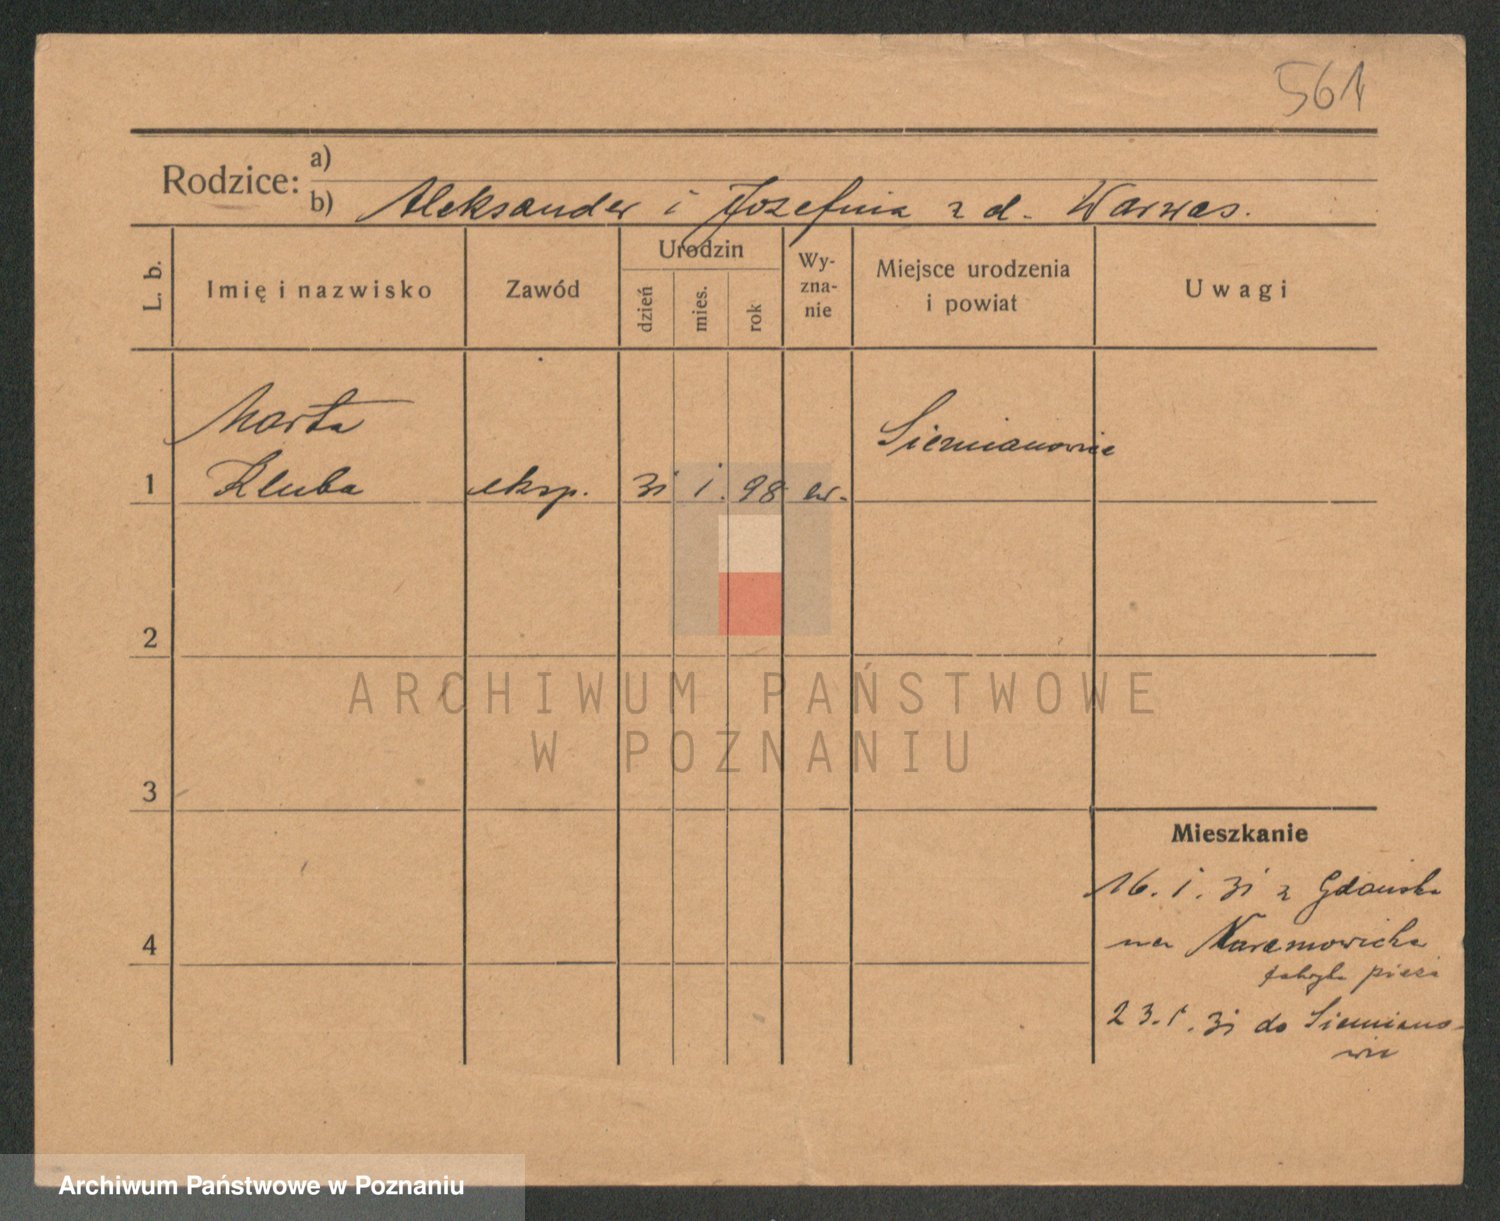 561
Rodzice:
a)
b) Aleksander i Jozefina z d. Warwas.
L. b.
Imię i nazwisko
Zawód
Urodzin
dzień
mies.
rok
Wy-
zna-
nie
Miejsce urodzenia
i powiat
Uwagi
Marta
Siemianowice
1 Kluba eksp. 31 1. 98 ew.
2
3
4
Mieszkanie
16. 1. 31 z Gdańska
na Naramowicka
fabryka
23. 1. 31 do Siemiano-
wic
ARCHIWUM PAŃSTWOWE
W POZNANIU
Archiwum Państwowe w Poznaniu